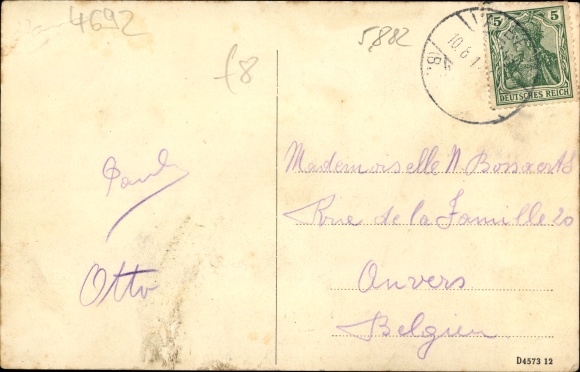 4692
5882
f8
5 5
DEUTSCHES REICH
10.6.1
Paul
Otto
Mademoiselle N. Bossaerts
Rue de la Famille 20
Anvers
Belgien
D4573 12